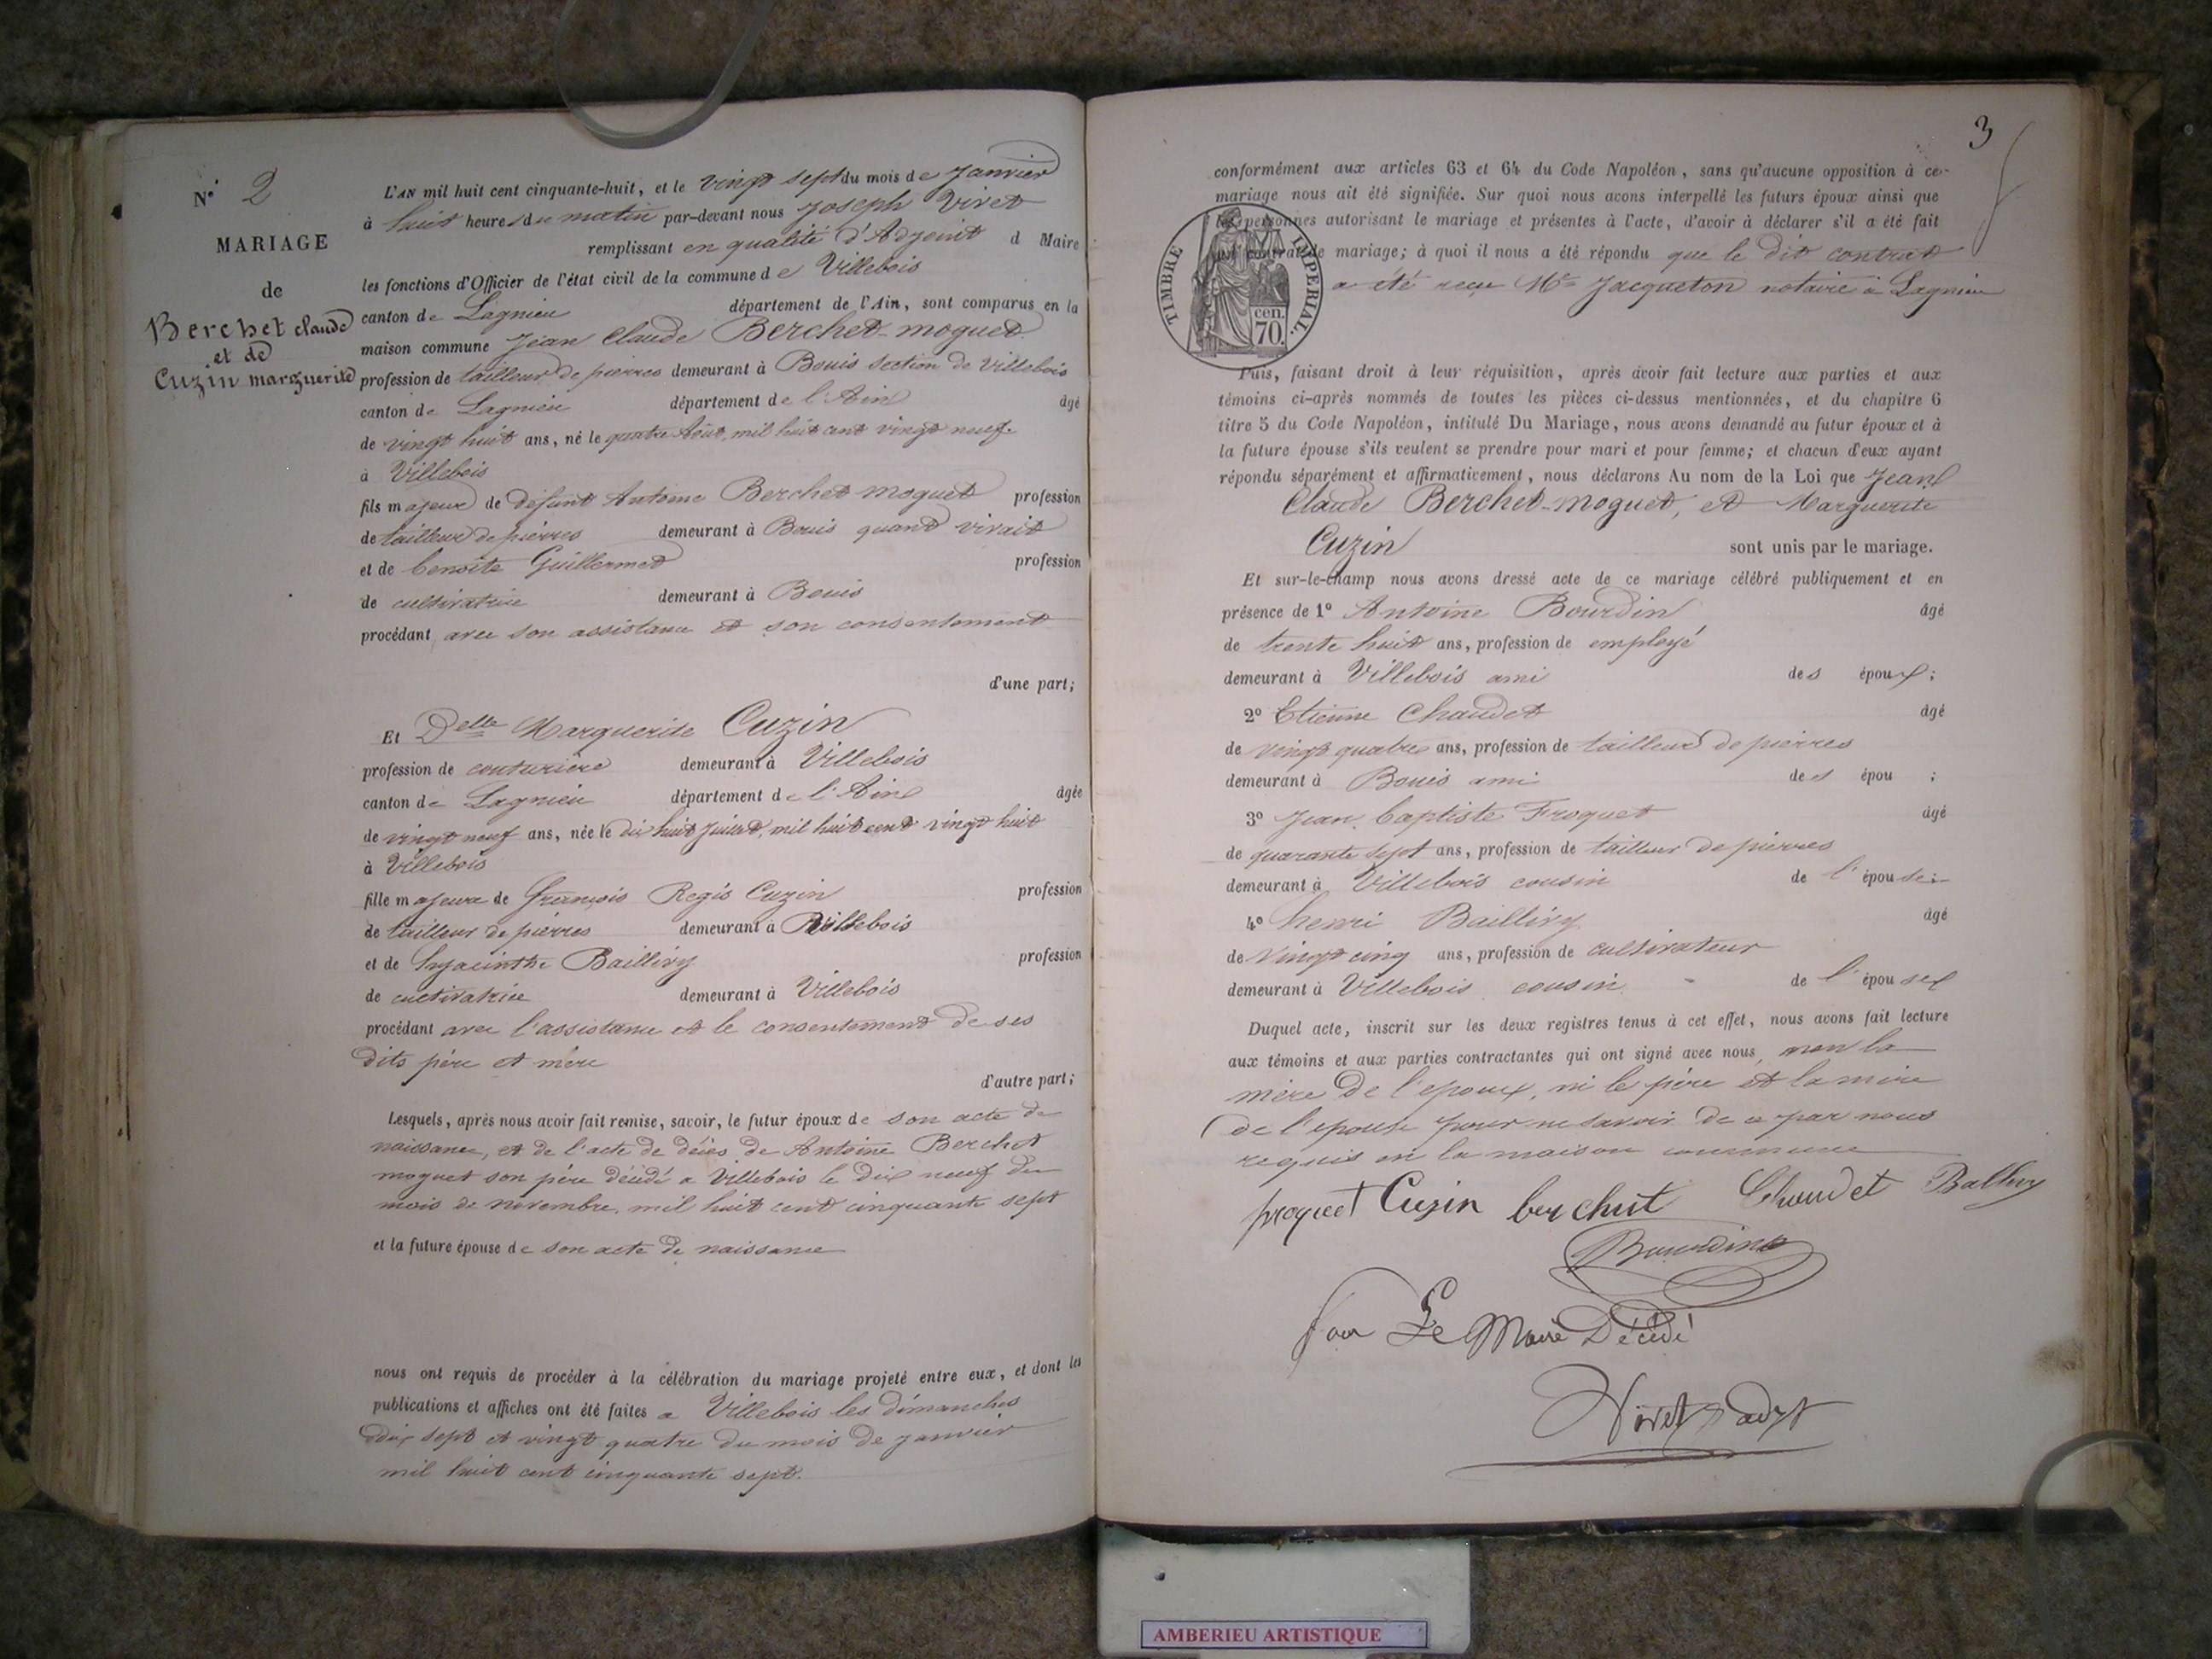 N° 2
MARIAGE
de
Berchet claude
et de
Cuzin marguerite
L'AN mil huit cent cinquante-huit, et le vingt sept du mois de Janvier
à huit heures du matin par-devant nous Joseph Viret
remplissant en qualité d'Adjoint d Maire
les fonctions d'Officier de l'état civil de la commune de Villebois
canton de Lagnieu département de l'Ain, sont comparus en la
maison commune Jean Claude Berchet-moguet
profession de tailleur de pierres demeurant à Bouis section de Villebois
canton de Lagnieu département de l'Ain âgé
de vingt huit ans, né le quatre Août, mil huit cent vingt neuf
à Villebois
fils majeur de défunt Antoine Berchet moguet profession
de tailleur de pierres demeurant à Bouis quand vivait
et de benoite Guillermet profession
de cultivatrice demeurant à Bouis
procédant avec son assistance et son consentement
d'une part;
Et Delle Marguerite Cuzin
profession de couturière demeurant à Villebois
canton de Lagnieu département de l'Ain âgée
de vingt neuf ans, née le dix huit Juillet, mil huit cent vingt huit
à Villebois
fille majeure de François Regis Cuzin profession
de tailleur de pierres demeurant à Villebois
et de hyacinthe Baillivy profession
de cultivatrice demeurant à Villebois
procédant avec l'assistance et le consentement de ses
dits père et mère
d'autre part;
Lesquels, après nous avoir fait remise, savoir, le futur époux de son acte de
naissance, et de l'acte de décès de Antoine Berchet
moguet son père décédé a Villebois le dix neuf du
mois de novembre, mil huit cent cinquante sept
et la future épouse de son acte de naissance
nous ont requis de procéder à la célébration du mariage projeté entre eux, et dont les
publications et affiches ont été faites a Villebois les dimanches
dix sept et vingt quatre du mois de janvier
mil huit cent cinquante sept.
3
conformément aux articles 63 et 64 du Code Napoléon, sans qu'aucune opposition à ce
mariage nous ait été signifiée. Sur quoi nous avons interpellé les futurs époux ainsi que
les personnes autorisant le mariage et présentes à l'acte, d'avoir à déclarer s'il a été fait
un contrat de mariage; à quoi il nous a été répondu que le dit contrat
a été reçu Me Jacqueton notaire à Lagnieu
TIMBRE IMPERIAL.
cen.
70.
Puis, faisant droit à leur réquisition, après avoir fait lecture aux parties et aux
témoins ci-après nommés de toutes les pièces ci-dessus mentionnées, et du chapitre 6
titre 5 du Code Napoléon, intitulé Du Mariage, nous avons demandé au futur époux et à
la future épouse s'ils veulent se prendre pour mari et pour femme; et chacun d'eux ayant
répondu séparément et affirmativement, nous déclarons Au nom de la Loi que Jean
Claude Berchet-moguet, et Marguerite
Cuzin sont unis par le mariage.
Et sur-le-champ nous avons dressé acte de ce mariage célébré publiquement et en
présence de 1° Antoine Bourdin âgé
de trente huit ans, profession de employé
demeurant à Villebois ami des époux;
2° Etienne Chaudet âgé
de vingt quatre ans, profession de tailleur de pierres
demeurant à Bouis ami des épou ;
3° Jean baptiste Froquet âgé
de quarante sept ans, profession de tailleur de pierres
demeurant à Villebois cousin de l'épouse;
4° henri Baillivy âgé
de vingt cinq ans, profession de cultivateur
demeurant à Villebois cousin de l'épouse
Duquel acte, inscrit sur les deux registres tenus à cet effet, nous avons fait lecture
aux témoins et aux parties contractantes qui ont signé avec nous, non la
mère de l'époux, ni le père et la mère
de l'épouse pour ne savoir de ce par nous
requis en la maison commune
proquet Cuzin berchet Chaudet Ballivy
Bourdin
Pour Le Maire Décédé
Viret adjt
AMBERIEU ARTISTIQUE